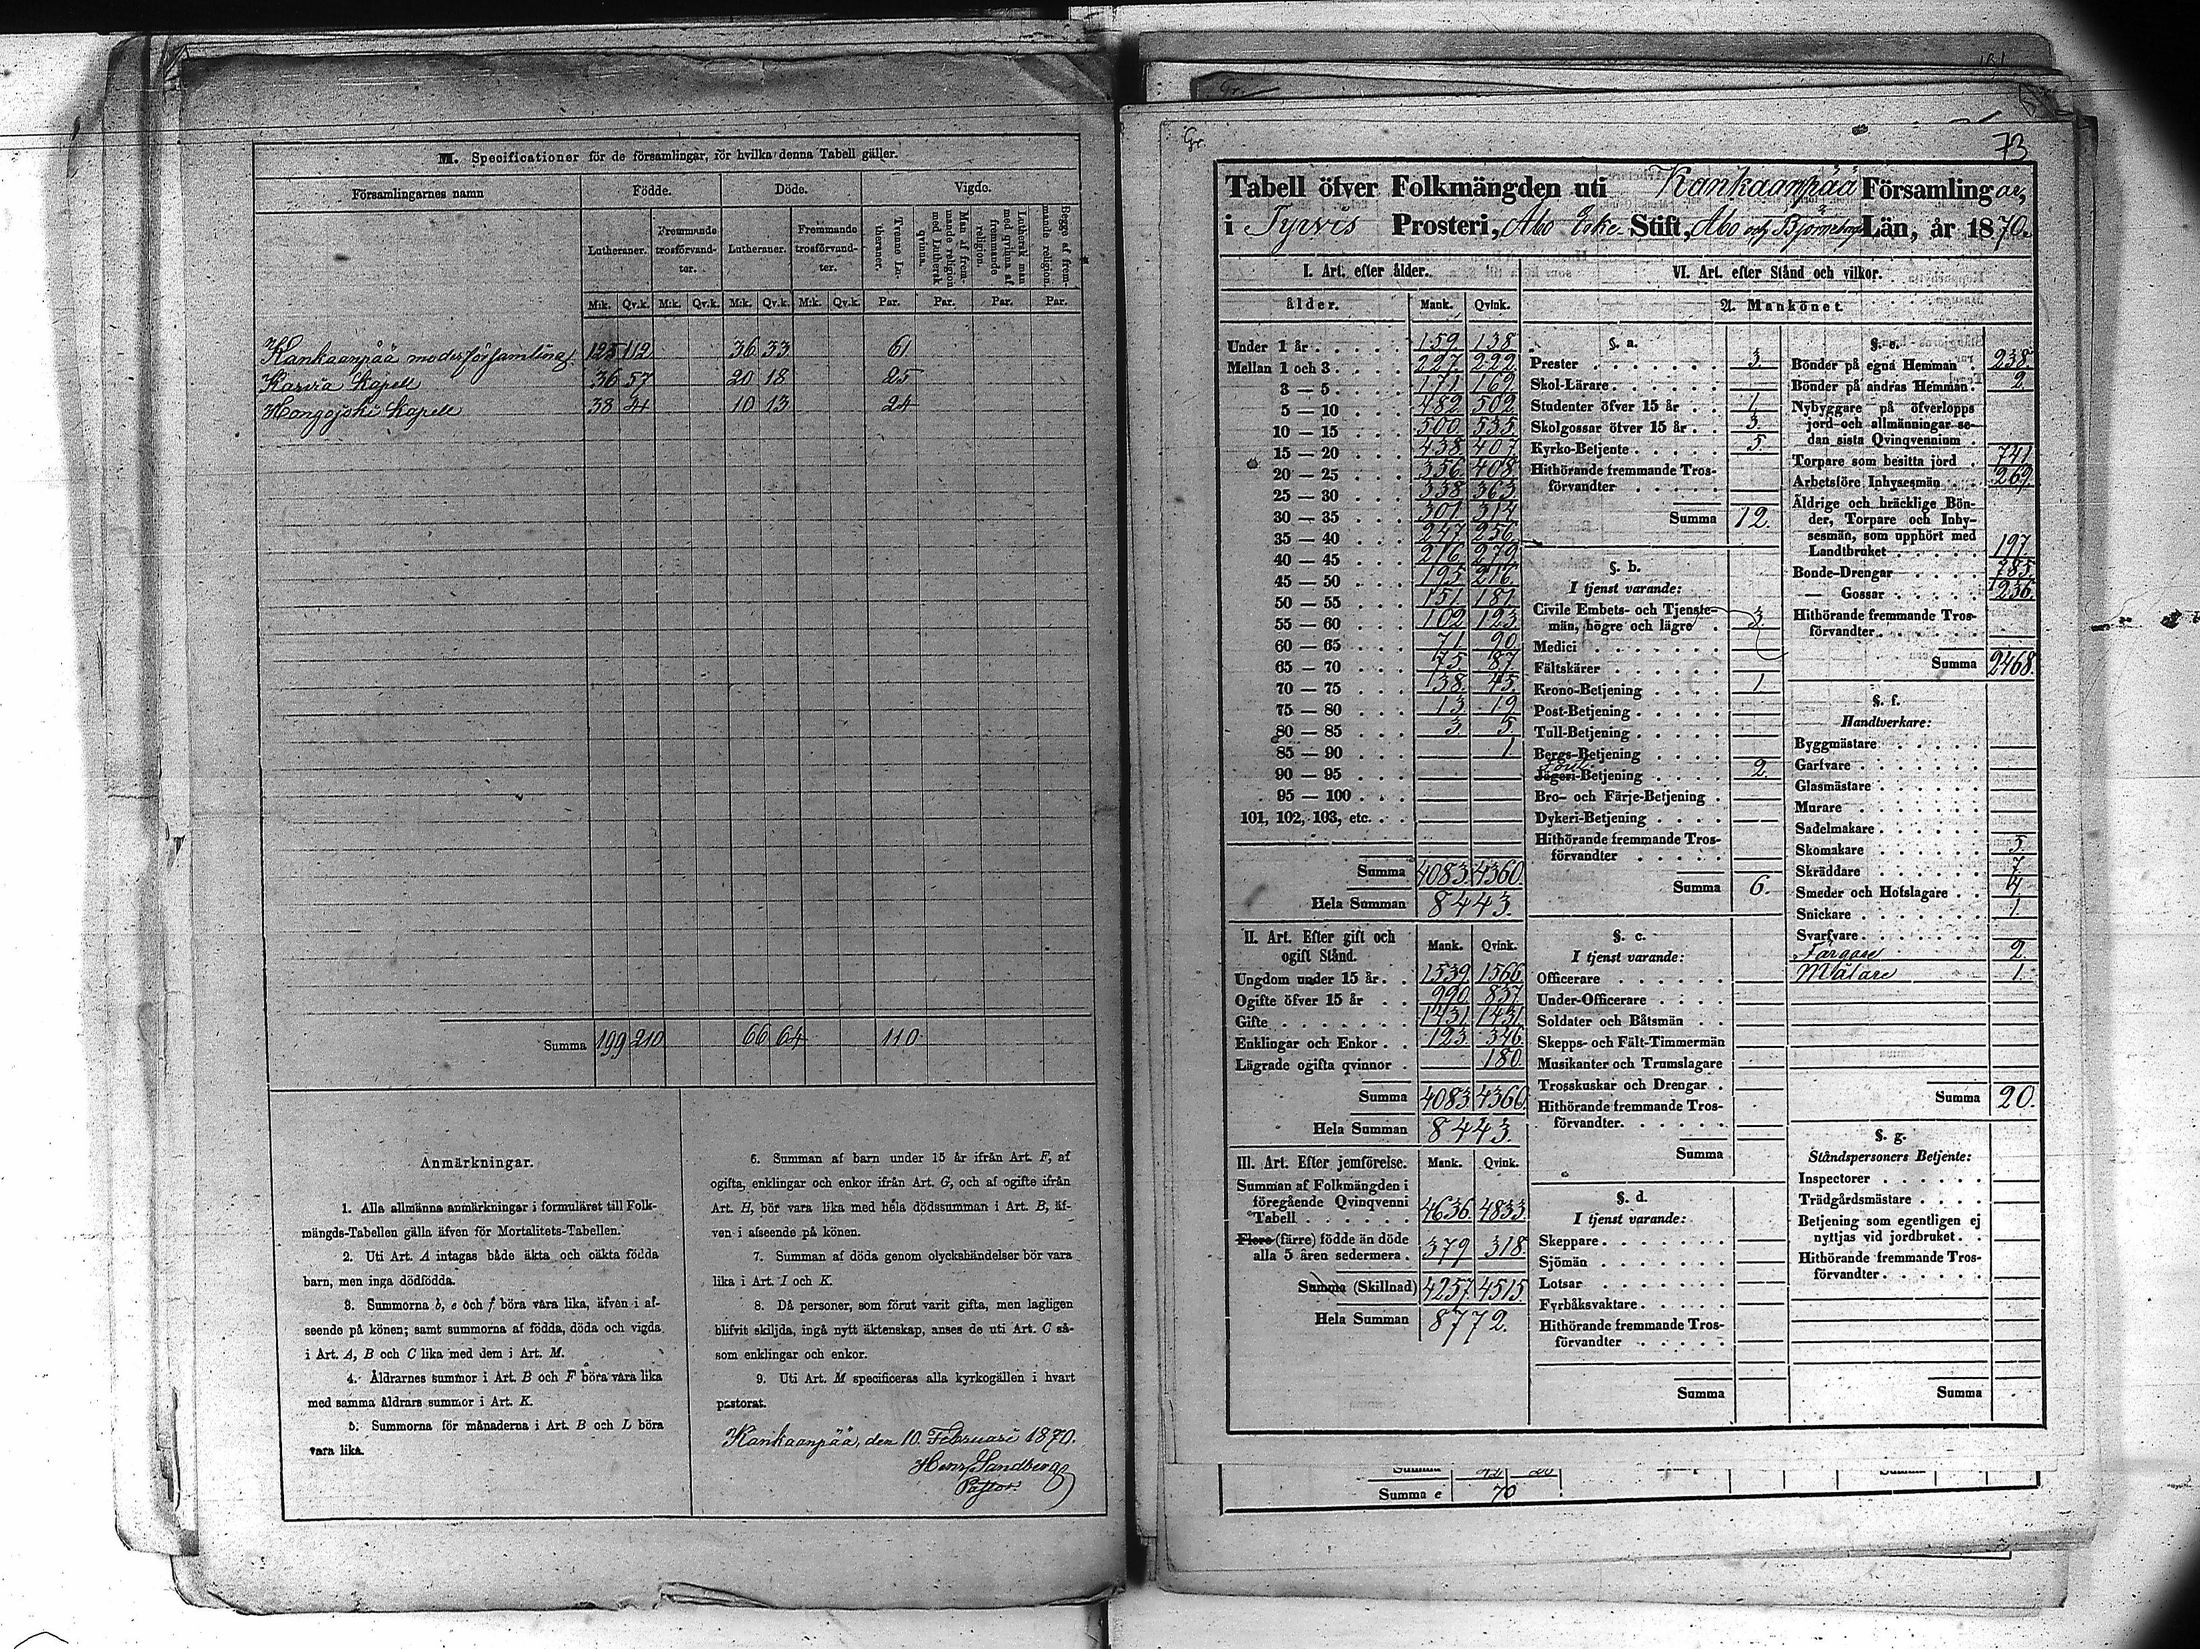 M. Specificationer för de församlingar, för hvilka denna Tabell gäller.
Församlingarnes namn Födde. Döde. Vigde.
Lutheraner. Fremmande trosförvandter. Lutheraner. Fremmande trosförvandter. Trenne Lutheraner. Man af fremmande religion med Luthersk qvinna. Luthersk man med qvinna af fremmande religion. Begge af fremmande religion.
M.k. Qv.k. M.k. Qv.k. M.k. Qv.k. M.k. Qv.k. Par. Par. Par. Par.
Kankaanpää moderförsamling 125 112 36 33 61
Karvia Kapell 36 57 20 18 25
Hongojoki Kapell 38 41 10 13 24
Summa 199 210 66 64 110
Anmärkningar.
1. Alla allmänna anmärkningar i formuläret till Folk-
mängds-Tabellen gälla äfven för Mortalitets-Tabellen.
2. Uti Art. A intagas både äkta och oäkta födda
barn, men inga dödfödda.
3. Summorna b, e och f böra vara lika, äfven i af-
seende på könen; samt summorna af födda, döda och vigda
i Art. A, B och C lika med dem i Art. M.
4. Åldrarnes summor i Art. B och F böra vara lika
med samma åldrars summor i Art. K.
5. Summorna för månaderna i Art. B och L böra
vara lika.
6. Summan af barn under 15 år ifrån Art. F, af
ogifta, enklingar och enkor ifrån Art. G, och af ogifte ifrån
Art. H, bör vara lika med hela dödssumman i Art. B, äf-
ven i afseende på könen.
7. Summan af döda genom olyckshändelser bör vara
lika i Art. I och K.
8. Då personer, som förut varit gifta, men lagligen
blifvit skiljda, ingå nytt äktenskap, anses de uti Art. C så-
som enklingar och enkor.
9. Uti Art. M specificeras alla kyrkogällen i hvart
pastorat.
Kankaanpää, den 10. Februari 1870.
Henr. Sandberg
Pastor
Gr.
73
Tabell öfver Folkmängden uti Kankaanpää Församlingar,
i Tyrvis Prosteri, Åbo Erke Stift, Åbo och Björneborgs Län, år 1870.
I. Art. efter ålder.
ålder. Mank. Qvink.
Under 1 år 159 138
Mellan 1 och 3 227 222
3 — 5 171 169
5 — 10 482 502
10 — 15 500 535
15 — 20 438 407
20 — 25 356 408
25 — 30 338 363
30 — 35 301 314
35 — 40 247 256
40 — 45 216 279
45 — 50 195 216
50 — 55 151 181
55 — 60 102 123
60 — 65 71 90
65 — 70 75 87
70 — 75 38 45
75 — 80 13 19
80 — 85 3 5
85 — 90 1
90 — 95
95 — 100
101, 102, 103, etc.
Summa 4083 4360.
Hela Summan 8443.
II. Art. Efter gift och
ogift Stånd. Mank. Qvink.
Ungdom under 15 år 1539 1566
Ogifte öfver 15 år 990 837
Gifte 1431 1431
Enklingar och Enkor 123 346
Lägrade ogifta qvinnor 180
Summa 4083 4360
Hela Summan 8443.
III. Art. Efter jemförelse. Mank. Qvink.
Summan af Folkmängden i
föregående Qvinqvenni
Tabell 4636 4833
Flere (färre) födde än döde
alla 5 åren sedermera 379 318
Summa (Skillnad) 4257 4515
Hela Summan 8772.
VI. Art. efter Stånd och vilkor.
A. Mankönet.
§. a.
Prester 3.
Skol-Lärare
Studenter öfver 15 år 1.
Skolgossar öfver 15 år 3.
Kyrko-Betjente 5.
Hithörande fremmande Tros-
förvandter
Summa 12.
§. b.
I tjenst varande:
Civile Embets- och Tjenste-
män, högre och lägre 3.
Medici
Fältskärer
Krono-Betjening 1
Post-Betjening
Tull-Betjening
Bergs-Betjening
Jägeri-Betjening 2.
Bro- och Färje-Betjening
Dykeri-Betjening
Hithörande fremmande Tros-
förvandter
Summa 6.
§. c.
I tjenst varande:
Officerare
Under-Officerare
Soldater och Båtsmän
Skepps- och Fält-Timmermän
Musikanter och Trumslagare
Trosskuskar och Drengar
Hithörande fremmande Tros-
förvandter
Summa
§. d.
I tjenst varande:
Skeppare
Sjömän
Lotsar
Fyrbåksvaktare
Hithörande fremmande Tros-
förvandter
Summa
§. e.
Bönder på egna Hemman 238.
Bönder på andras Hemman 2
Nybyggare på öfverlopps
jord och allmänningar se-
dan sista Qvinqvennium
Torpare som besitta jord 741
Arbetsföre Inhysesmän 269
Åldrige och bräcklige Bön-
der, Torpare och Inhy-
sesmän, som upphört med
Landtbruket 197
Bonde-Drengar 785
— Gossar 236.
Hithörande fremmande Tros-
förvandter
Summa 2468.
§. f.
Handtverkare:
Byggmästare
Garfvare
Glasmästare
Murare
Sadelmakare
Skomakare 5
Skräddare 7
Smeder och Hofslagare 4
Snickare 1.
Svarfvare
Färgare 2.
Målare 1.
Summa 20.
§. g.
Ståndspersoners Betjente:
Inspectorer
Trädgårdsmästare
Betjening som egentligen ej
nyttjas vid jordbruket
Hithörande fremmande Tros-
förvandter
Summa
Summa e 70